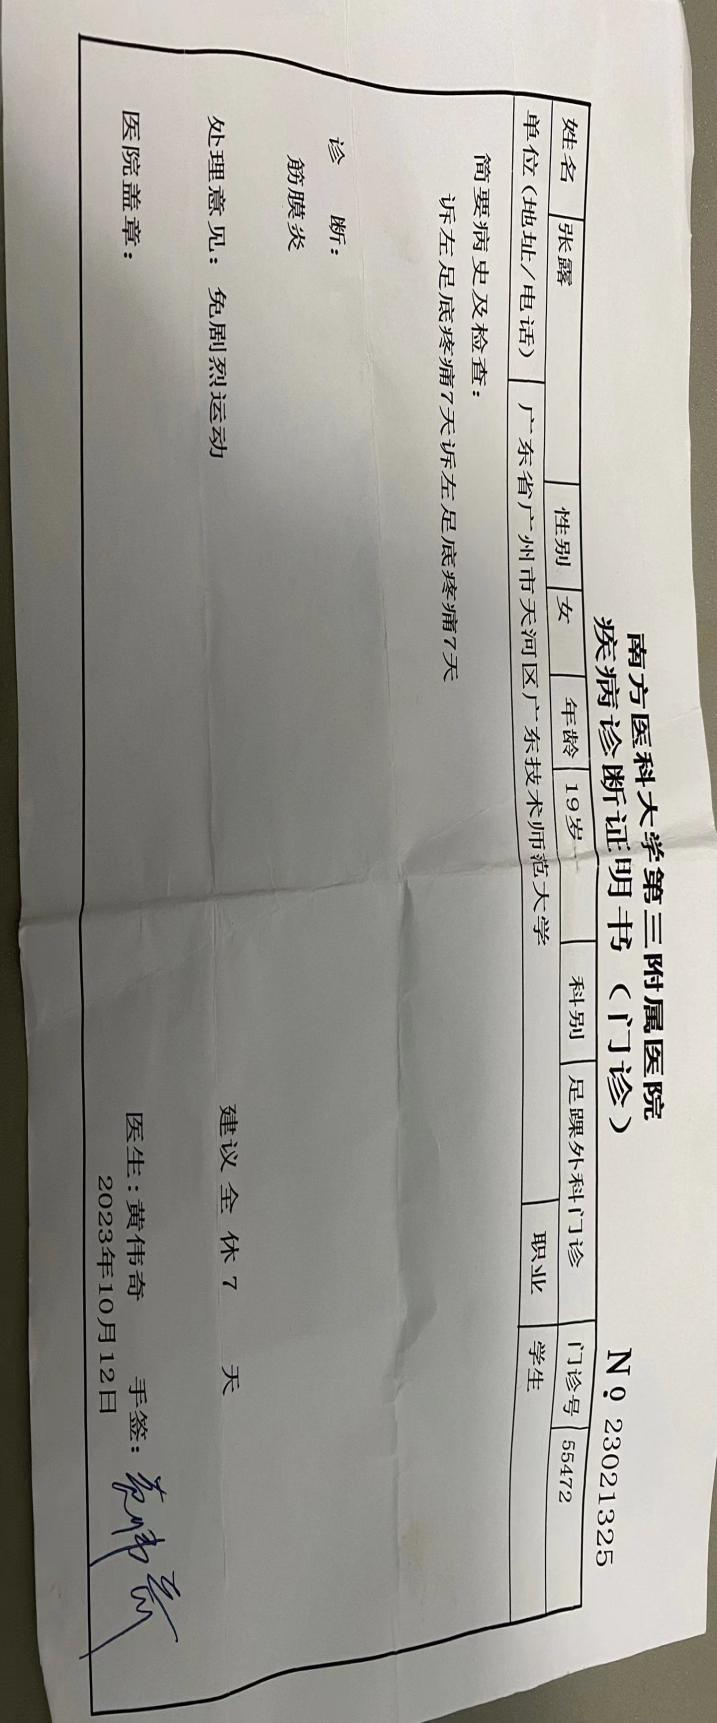 南方医科大学第三附属医院
疾病诊断证明书（门诊）
№ 23021325
姓名 张露 性别 女 年龄 19岁 科别 足踝外科门诊 门诊号 55472
单位(地址/电话) 广东省广州市天河区广东技术师范大学 职业 学生
简要病史及检查：
诉左足底疼痛7天诉左足底疼痛7天
诊 断：
筋膜炎
处理意见：免剧烈运动 建议全休7 天
医院盖章： 医生：黄伟奇 手签：黄伟奇
2023年10月12日